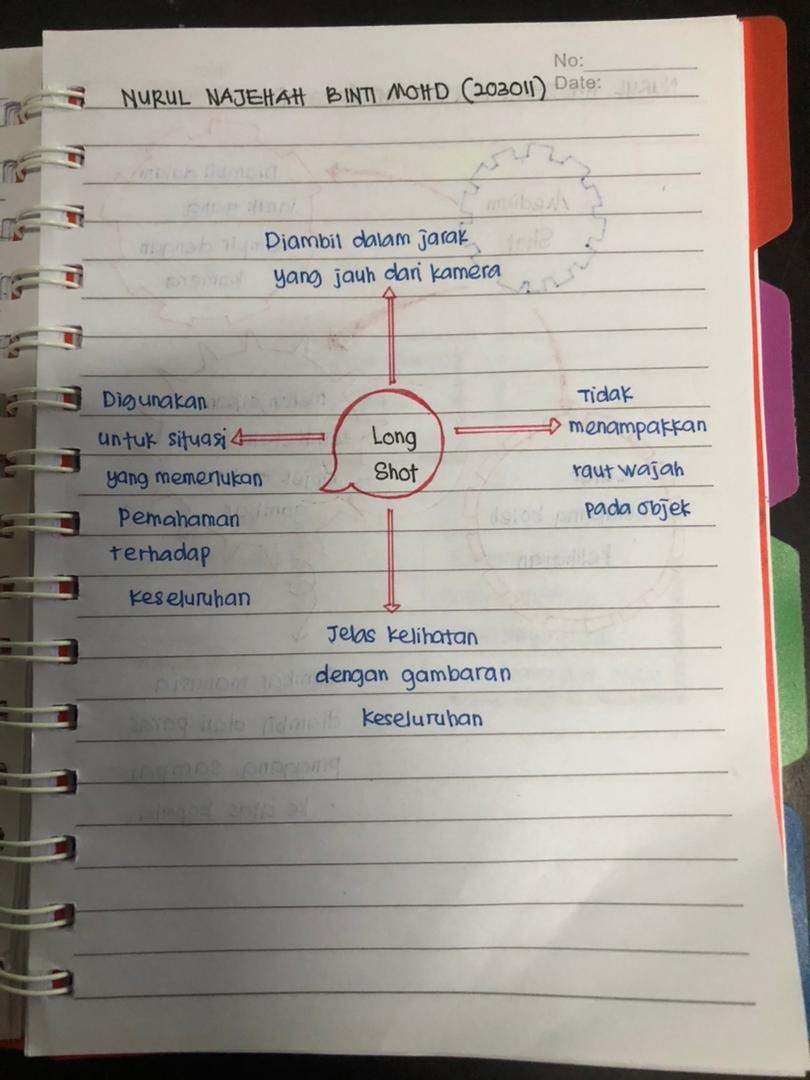 No:
Date:
NURUL NAJEHAH BINTI MOHD (203011)
Diambil dalam jarak
yang jauh dari kamera
Digunakan
untuk situasi
yang memerlukan
Pemahaman
terhadap
Keseluruhan
Long
Shot
Tidak
menampakkan
raut wajah
pada objek
Jelas kelihatan
dengan gambaran
Keseluruhan